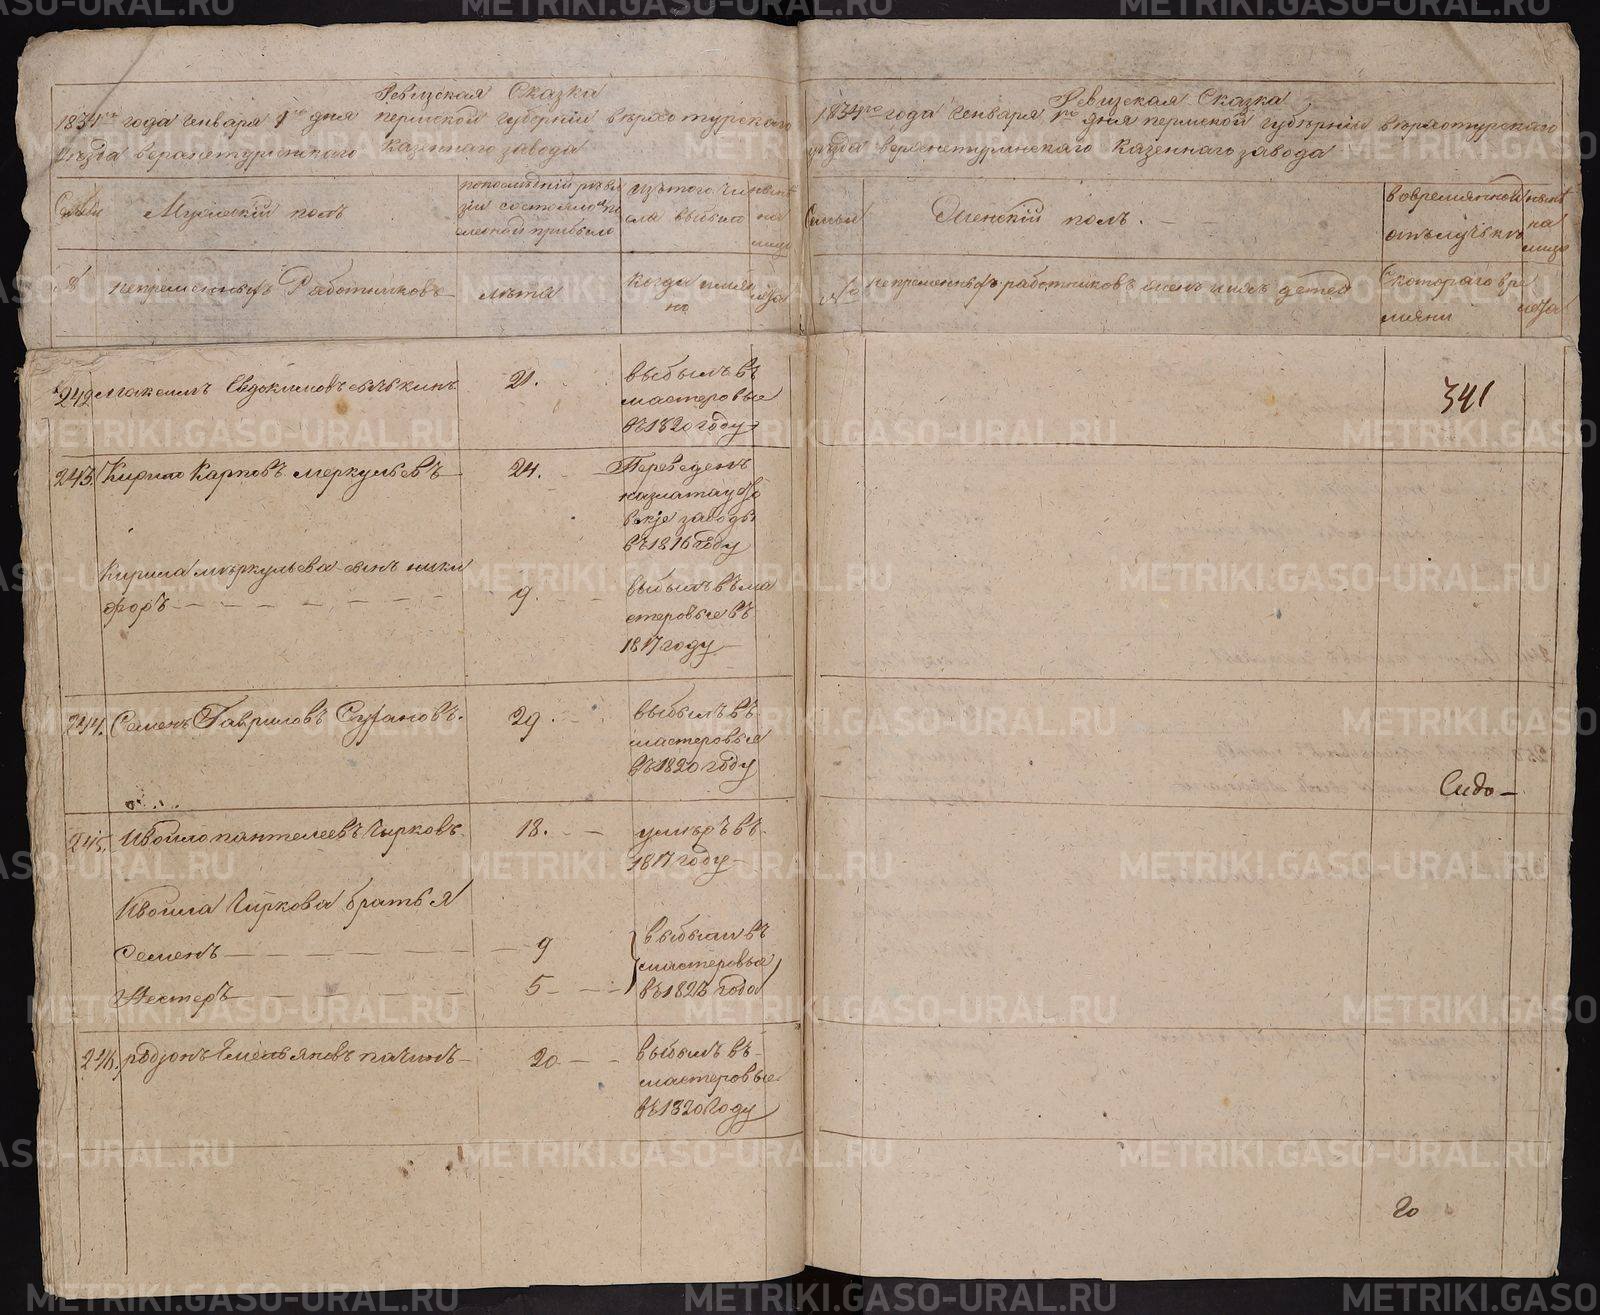 Ревизская Сказка
1834го года Генваря 1го дня пермской губернии верхотурского
уезда верхнетуринского казеннаго завода
Семьи
Мужеский полъ
попоследней реви
зии состояло и по
оной прибыло
изътого чи
сла выбыло
ныне
на
лицо
№
непременныхъ Работниковъ
лета
когда имен
но
лета
242 Максимъ Евдокимовъ
21.
выбылъ въ
мастеровые
въ 1820 году
243. Кирило Карповъ меркульевъ
24.
Переведенъ
назлатоусто
вские заводы
въ 1816 году
Кирила меркульева сынъ ники
форъ
9.
выбылъ въ ма
стеровые въ
1817 году
244. Семенъ Гавриловъ Сугановъ.
29.
выбылъ въ
мастеровые
въ 1820 году
245. Ивойло пантелеевъ Чирковъ
18.
умеръ въ
1817 году
Ивойла Чиркова братья
Семенъ
9
Нестеръ
5
выбыли въ
мастеровые
въ 1823 года
246. родионъ Емельяновъ пачинъ
20
выбылъ въ
мастеровые
въ 1820 году
Ревизская Сказка
1834го года Генваря 1го дня пермской губернии верхотурского
уезда верхнетуринскаго Казеннаго завода
Семьи
Женский полъ.
вовременной
отълучке
ныне
на
лицо
№
непременныхъ работниковъ жены ихъ детей
Скотораго вре
мяни
лета
341
Сидо
го
METRIKI.GASO-URAL.RU